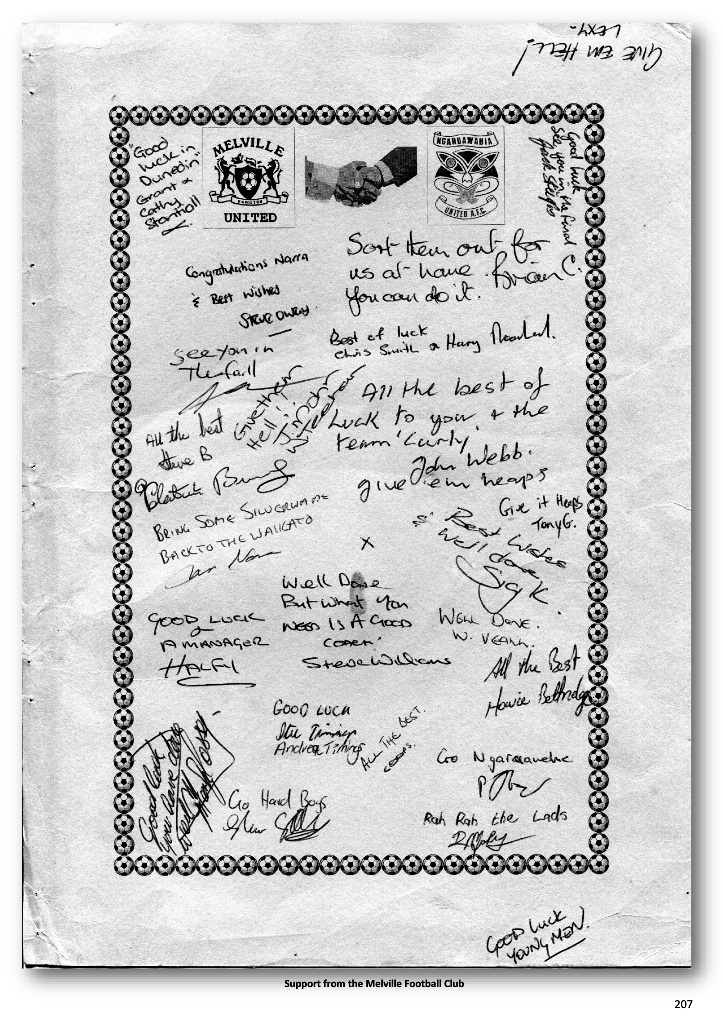 GIVE EM HELL!
LEXY.
"Good
luck in
Dunedin"
Grant &
Cathy
Stantiall
MELVILLE
HAMILTON
UNITED
NGARUAWAHIA
UNITED A.F.C.
Good luck
see you in the final
Congratulations Narra
& Best Wishes
Steve Owens
Sort them out for
us at home. Brian C.
You can do it.
See you in
The fall
Best of luck
Chris Smith & Harry
All the best
Steve B
Give them
Hell!!
All the best of
Luck to you & the
team 'Curly'
John Webb.
give 'em heaps
BRING SOME SILVERWARE
BACK TO THE WAIKATO
Give it Heaps
Tony G.
& Best Wishes
Well done,
Sig K.
X
Well Done
But What You
NEED IS A GOOD
COACH!
Steve Williams
GOOD LUCK
A MANAGER
HALFY
WELL DONE.
W.
All the Best
Howie Bettridge
GOOD LUCK
Stu Timings
Andrea Timings
ALL THE BEST.
Good luck
you have done
well
Go Hard Boys
Go Ngaruawahia
Rah Rah the Lads
GOOD LUCK
YOUNG MEN!
Support from the Melville Football Club
207